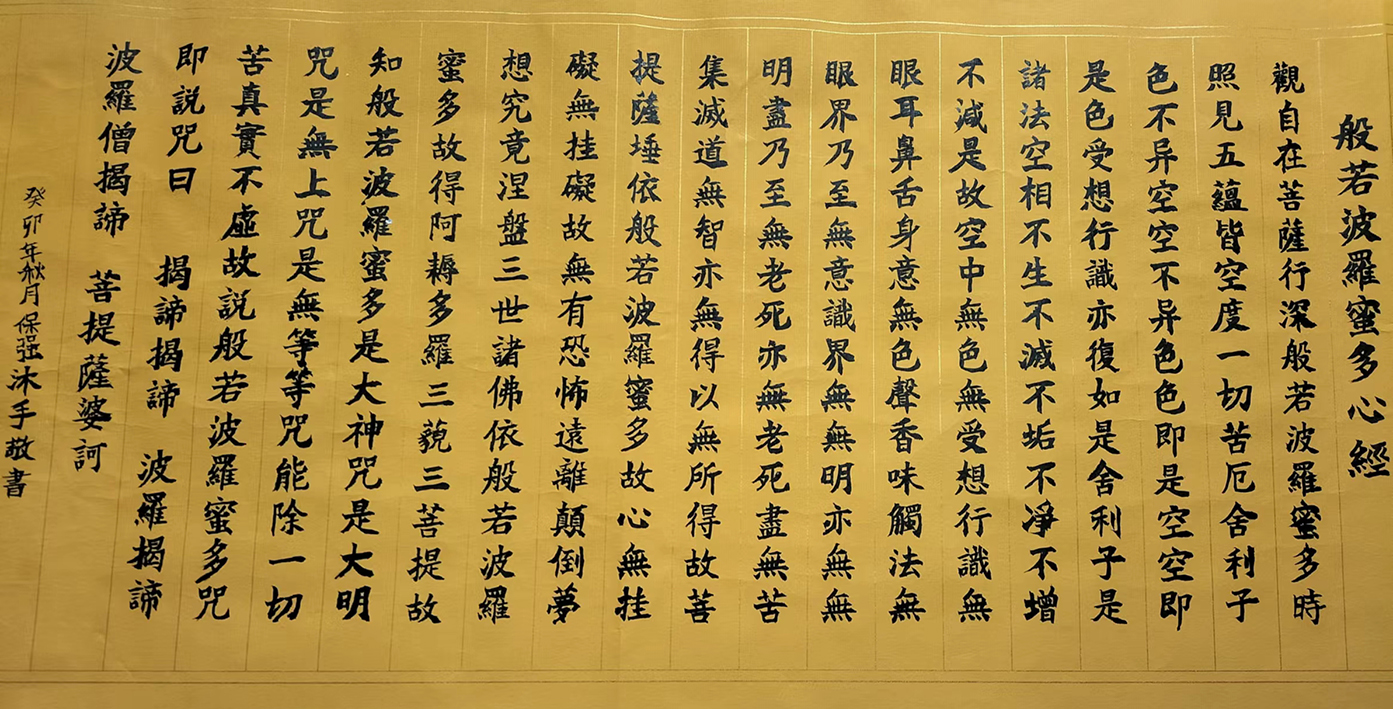 般若波羅蜜多心經
觀自在菩薩行深般若波羅蜜多時
照見五蘊皆空度一切苦厄舍利子
色不异空空不异色色即是空空即
是色受想行識亦復如是舍利子是
諸法空相不生不滅不垢不凈不增
不減是故空中無色無受想行識無
眼耳鼻舌身意無色聲香味觸法無
眼界乃至無意識界無無明亦無無
明盡乃至無老死亦無老死盡無苦
集滅道無智亦無得以無所得故菩
提薩埵依般若波羅蜜多故心無挂
礙無挂礙故無有恐怖遠離顛倒夢
想究竟涅盤三世諸佛依般若波羅
蜜多故得阿耨多羅三藐三菩提故
知般若波羅蜜多是大神咒是大明
咒是無上咒是無等等咒能除一切
苦真實不虛故説般若波羅蜜多咒
即説咒曰 揭諦揭諦 波羅揭諦
波羅僧揭諦 菩提薩婆訶
癸卯年秋月保强沐手敬書